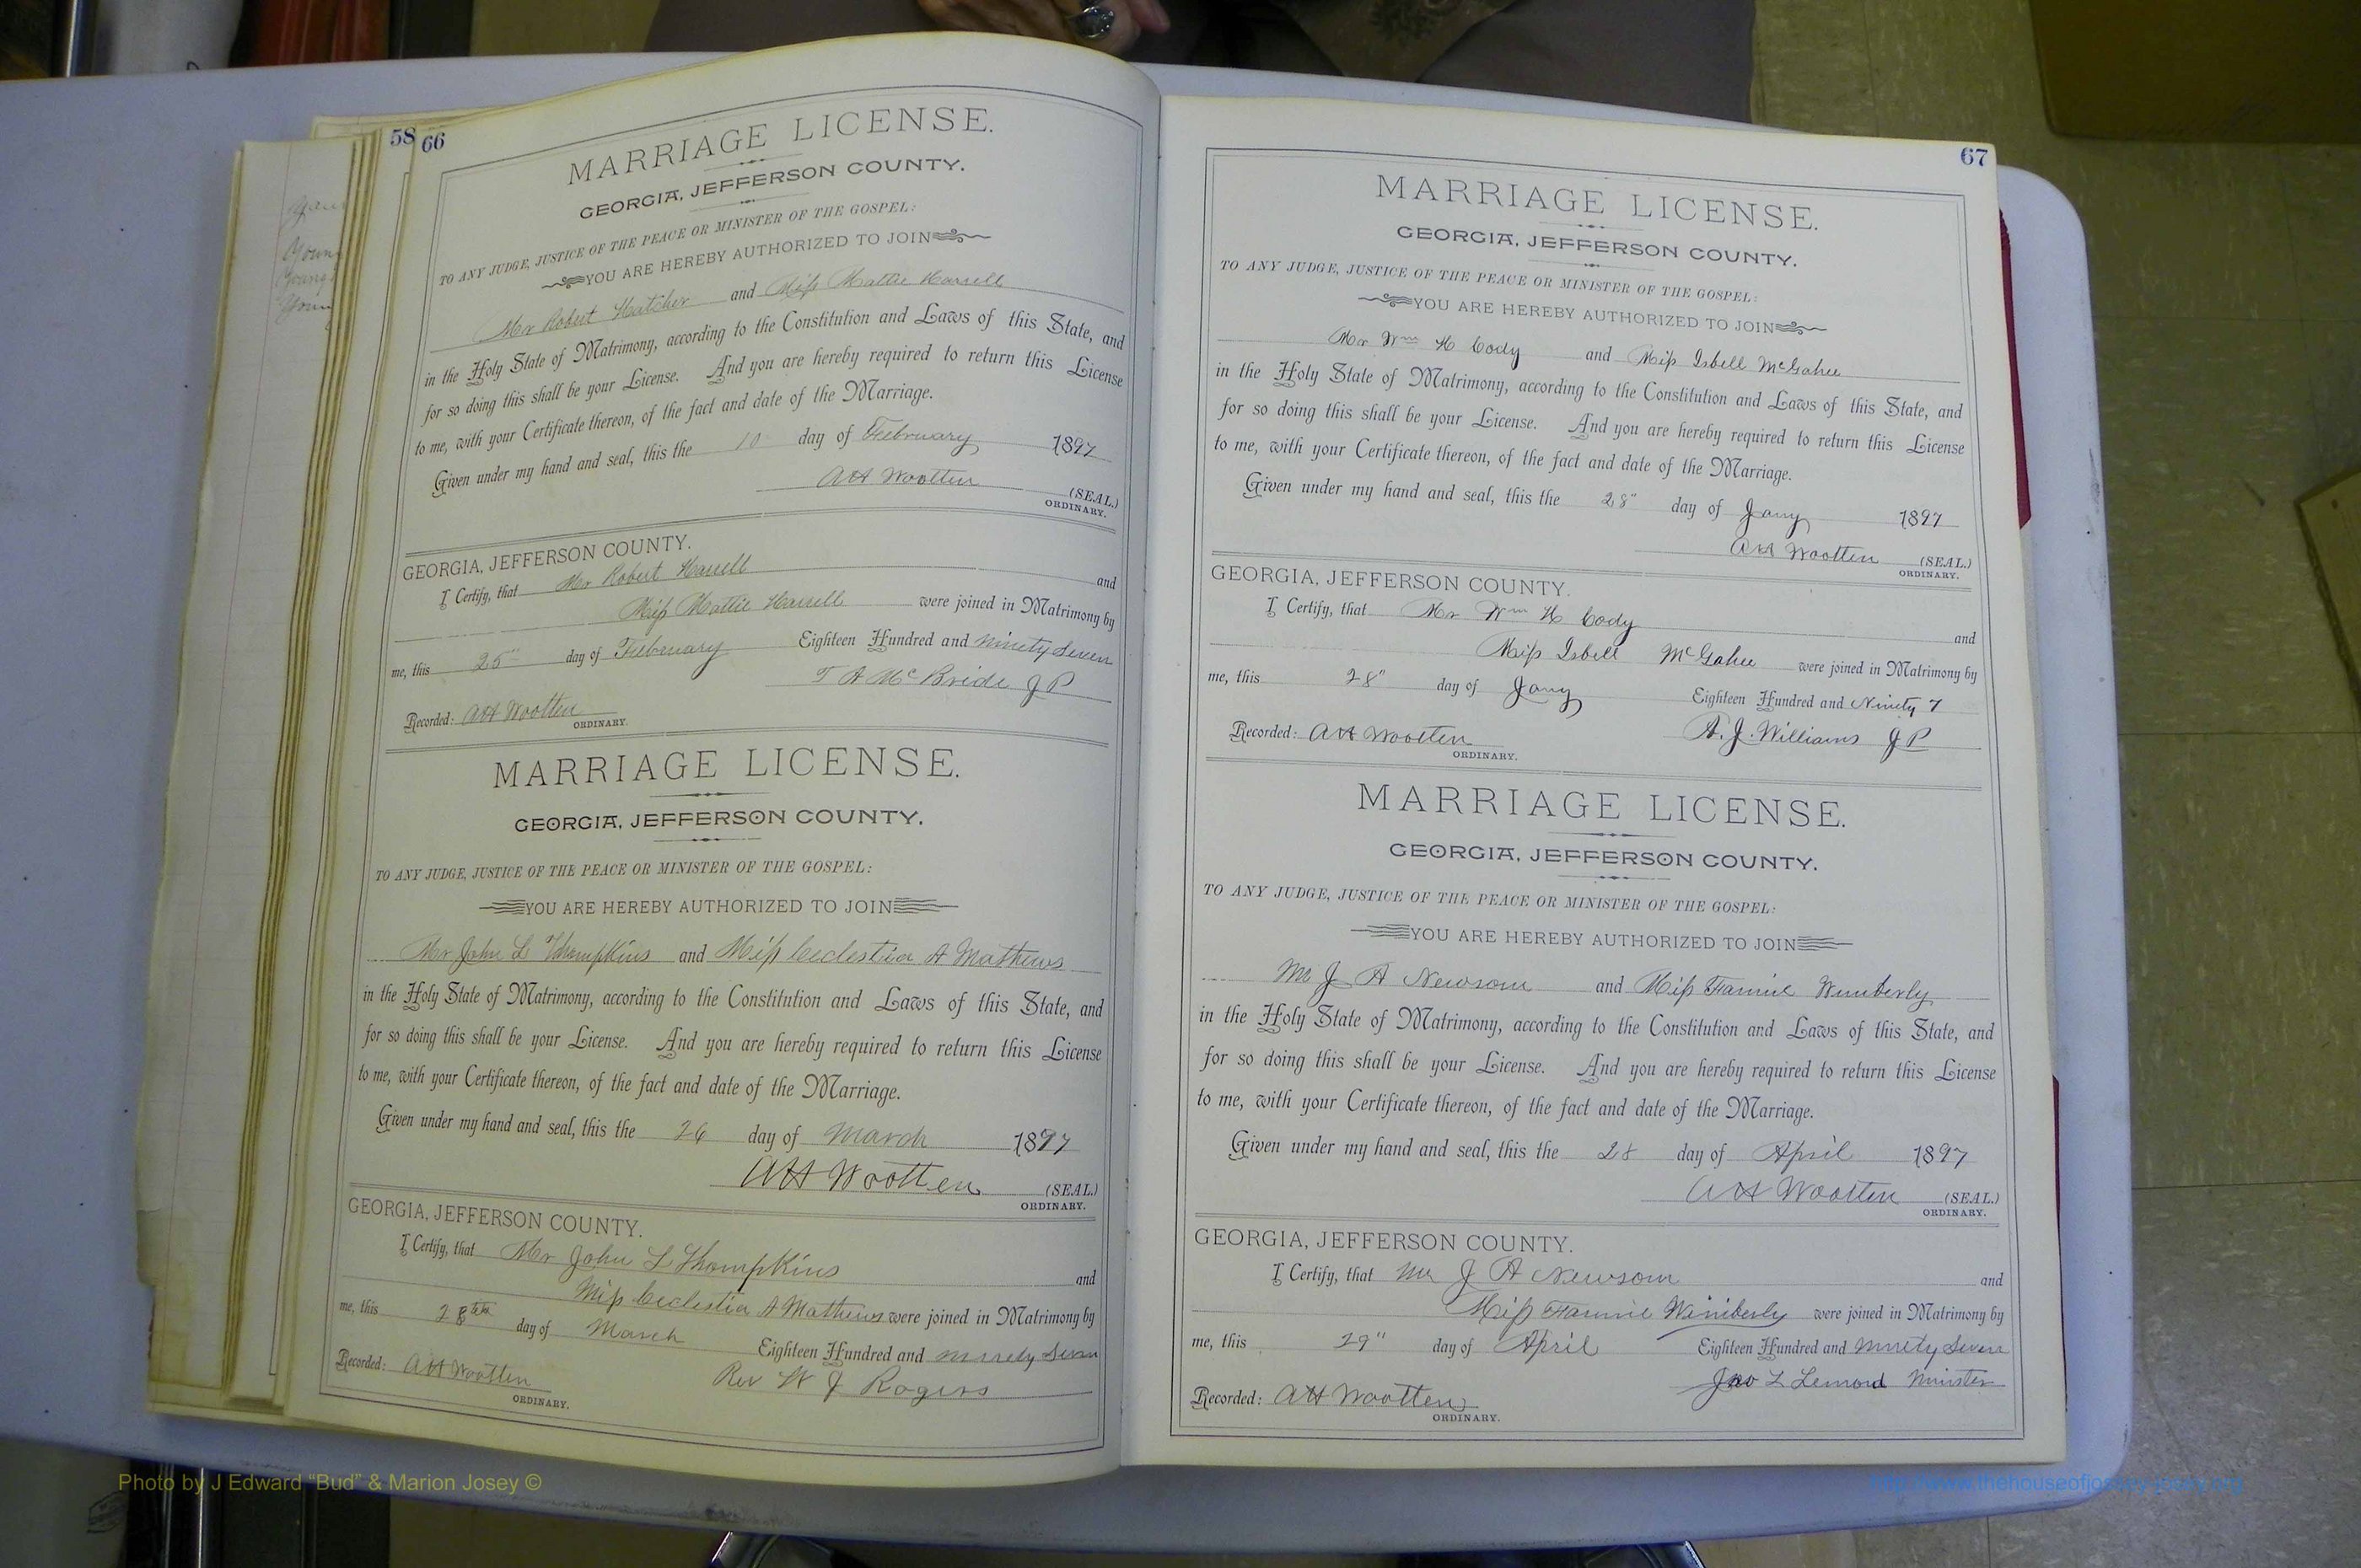 58
66
MARRIAGE LICENSE.
GEORGIA, JEFFERSON COUNTY.
TO ANY JUDGE, JUSTICE OF THE PEACE OR MINISTER OF THE GOSPEL:
YOU ARE HEREBY AUTHORIZED TO JOIN
Mr Robert Hatcher and Miss Mattie Harrell
in the Holy State of Matrimony, according to the Constitution and Laws of this State, and
for so doing this shall be your License. And you are hereby required to return this License
to me, with your Certificate thereon, of the fact and date of the Marriage.
Given under my hand and seal, this the 10 day of February 1897
AH Wootten (SEAL.)
ORDINARY.
GEORGIA, JEFFERSON COUNTY.
I Certify, that Mr Robert Harrell and
Miss Mattie Harrell were joined in Matrimony by
me, this 25" day of February Eighteen Hundred and ninety Seven
T A McBride J P
Recorded: AH Wootten
ORDINARY.
MARRIAGE LICENSE.
GEORGIA, JEFFERSON COUNTY.
TO ANY JUDGE, JUSTICE OF THE PEACE OR MINISTER OF THE GOSPEL:
YOU ARE HEREBY AUTHORIZED TO JOIN
Mr John L Thompkins and Miss A Mathews
in the Holy State of Matrimony, according to the Constitution and Laws of this State, and
for so doing this shall be your License. And you are hereby required to return this License
to me, with your Certificate thereon, of the fact and date of the Marriage.
Given under my hand and seal, this the 26 day of March 1897
AH Wootten (SEAL.)
ORDINARY.
GEORGIA, JEFFERSON COUNTY.
I Certify, that Mr John L Thompkins and
Miss A Mathews were joined in Matrimony by
me, this 28th day of March Eighteen Hundred and ninety Seven
Rev W J Rogers
Recorded: AH Wootten
ORDINARY.
67
MARRIAGE LICENSE.
GEORGIA, JEFFERSON COUNTY.
TO ANY JUDGE, JUSTICE OF THE PEACE OR MINISTER OF THE GOSPEL:
YOU ARE HEREBY AUTHORIZED TO JOIN
Mr Wm H Cody and Miss Isbell McGahee
in the Holy State of Matrimony, according to the Constitution and Laws of this State, and
for so doing this shall be your License. And you are hereby required to return this License
to me, with your Certificate thereon, of the fact and date of the Marriage.
Given under my hand and seal, this the 28" day of Jany 1897
AH Wootten (SEAL.)
ORDINARY.
GEORGIA, JEFFERSON COUNTY.
I Certify, that Mr Wm H Cody and
Miss Isbell McGahee were joined in Matrimony by
me, this 28" day of Jany Eighteen Hundred and Ninety 7
A. J. Williams J P
Recorded: AH Wootten
ORDINARY.
MARRIAGE LICENSE.
GEORGIA, JEFFERSON COUNTY.
TO ANY JUDGE, JUSTICE OF THE PEACE OR MINISTER OF THE GOSPEL:
YOU ARE HEREBY AUTHORIZED TO JOIN
Mr J A Newsom and Miss Fannie Wimberly
in the Holy State of Matrimony, according to the Constitution and Laws of this State, and
for so doing this shall be your License. And you are hereby required to return this License
to me, with your Certificate thereon, of the fact and date of the Marriage.
Given under my hand and seal, this the 28 day of April 1897
AH Wootten (SEAL.)
ORDINARY.
GEORGIA, JEFFERSON COUNTY.
I Certify, that Mr J A Newsom and
Miss Fannie Wimberly were joined in Matrimony by
me, this 29" day of April Eighteen Hundred and ninety Seven
Jno L Minister
Recorded: AH Wootten
ORDINARY.
Photo by J Edward “Bud” & Marion Josey ©